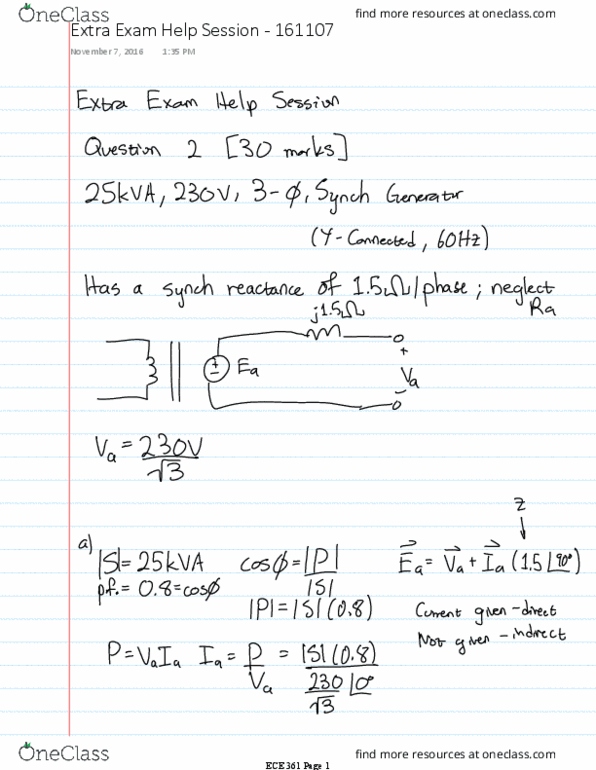 OneClass
find more resources at oneclass.com
Extra Exam Help Session - 161107
November 7, 2016 1:35 PM
Extra Exam Help Session
Question 2 [30 marks]
25kVA, 230V, 3-ϕ, Synch Generator
(Y-Connected, 60Hz)
Has a synch reactance of 1.5Ω/phase; neglect
Ra
j1.5Ω
+
-
Ea
+
Va
-
Va = 230V
√3
Z
a)
|S| = 25kVA
pf. = 0.8 = cosϕ
cosϕ = |P|
|S|
|P| = |S|(0.8)
Ea = Va + Ia (1.5∠90°)
Current given - direct
Not given - indirect
P = VaIa Ia = P = |S|(0.8)
Va 230 ∠0°
√3
OneClass
find more resources at oneclass.com
ECE361 Page 1